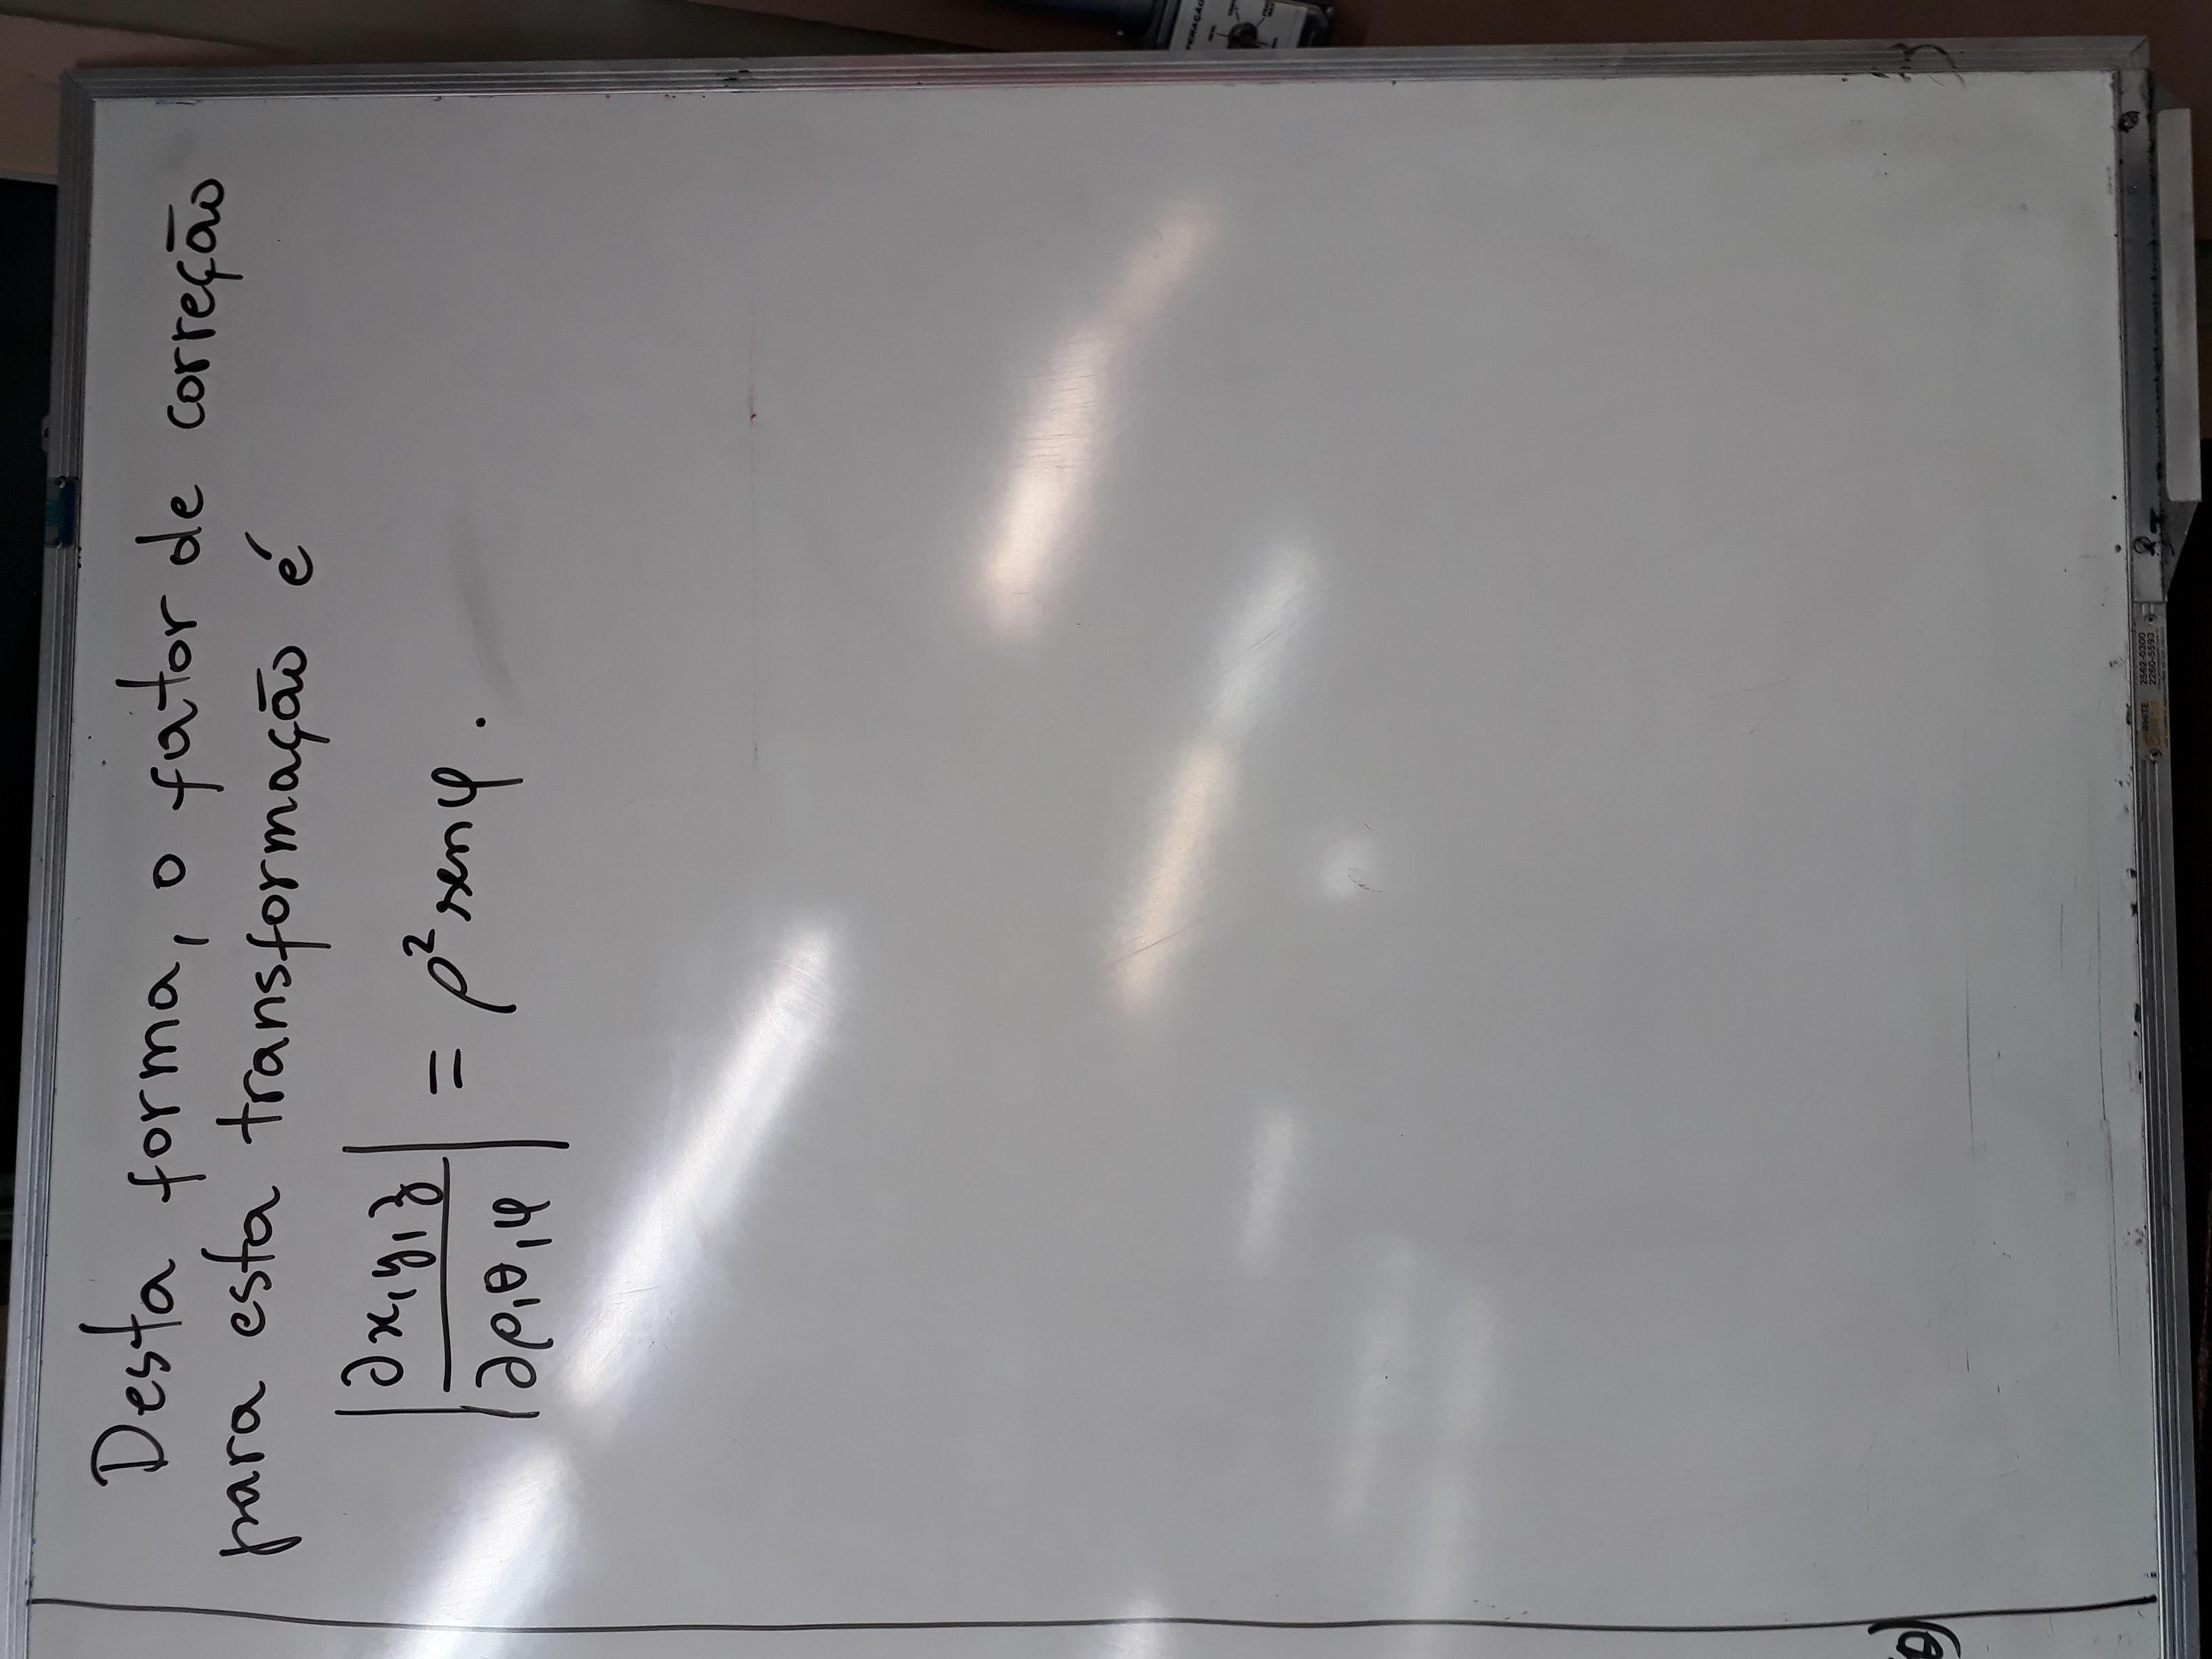 Desta forma, o fator de correção
para esta transformação é
|∂x,y,z / ∂ρ,θ,φ| = ρ² sen φ.
θ)
PERAÇÃO
WHITE 2562-0300
2260-5593